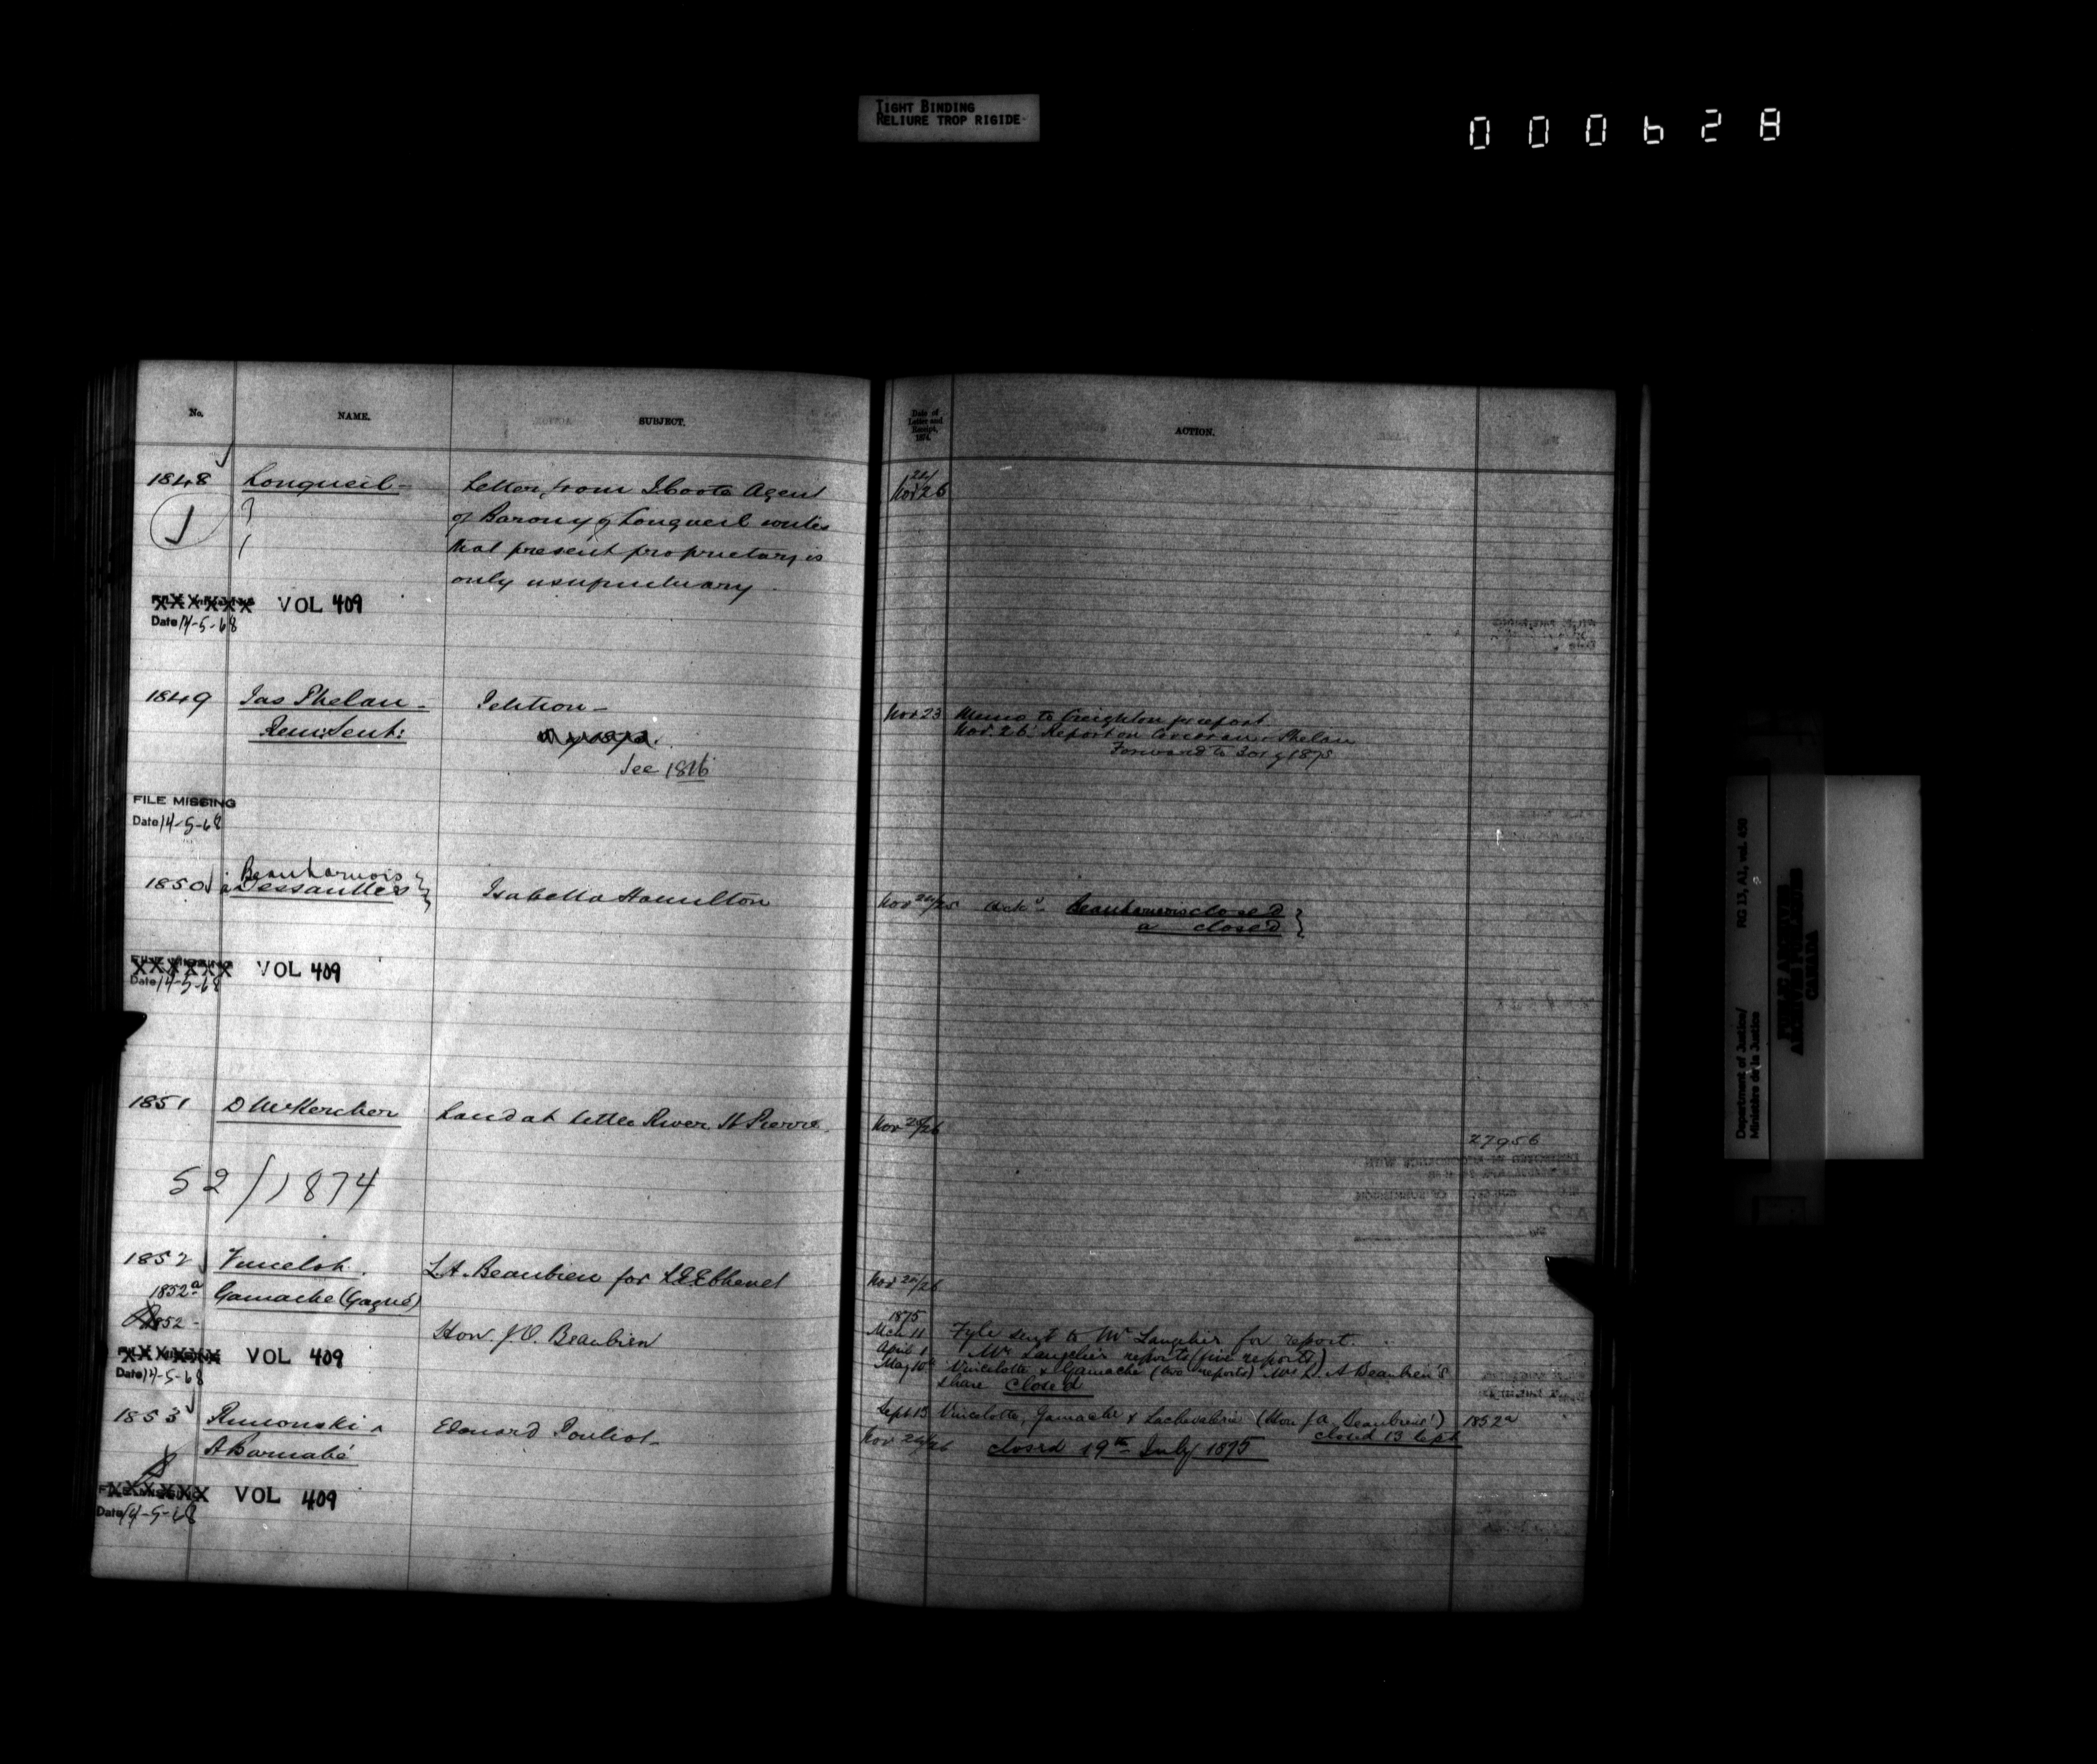 TIGHT BINDING
RELIURE TROP RIGIDE
000628
No.
NAME.
SUBJECT.
1848 Longueil -
Letter from I Coote Agent
of Barony of Longueil writes
that present proprietary is
only usufructuary
VOL 409
Date 14-5-68
1849 Jas Phelan -
Penitent:
Petition -
See 1816
FILE MISSING
Date 14-5-68
1850 Beauharnois
a Dessaulles
Isabella Hamilton
VOL 409
Date 14-5-68
1851 D McKercher
Land at little River St Pierre.
52/1874
1852 Vincelot.
L.A. Beaubien for
1852a Gamache (Gagné)
1852 -
Hon. J.O. Beaubien
VOL 409
Date 14-5-68
1853 Rimouski
A Barnabé
Edouard Pouliot
VOL 409
Date 14-5-68
Date of
Letter and
Receipt,
1874.
ACTION.
Nov 26
Nov 23 Memo to Creighton for report
Nov. 26. Report on Corcoran & Phelan
Forward to
Nov 24/25 Ackd Beauharnois closed
a closed
Nov 24/26
27956
Nov 24/26
1875
Mch 11 Fyle sent to Mr Langelier for report.
April 1 Mr Langelier reports (five reports)
May 10th Vincelotte & Gamache (two reports) Mrs L. A Beaubien's
share Closed
Sept 13 Vincelotte, Gamache & Lachevalerie (Hon J.O. Beaubien's) 1852a
closed 13 Sept
Nov 24/26 closed 19th July 1875
RG 13, A1, vol. 438
Department of Justice/
Ministère de la Justice
PUBLIC ARCHIVES
ARCHIVES PUBLIQUES
CANADA